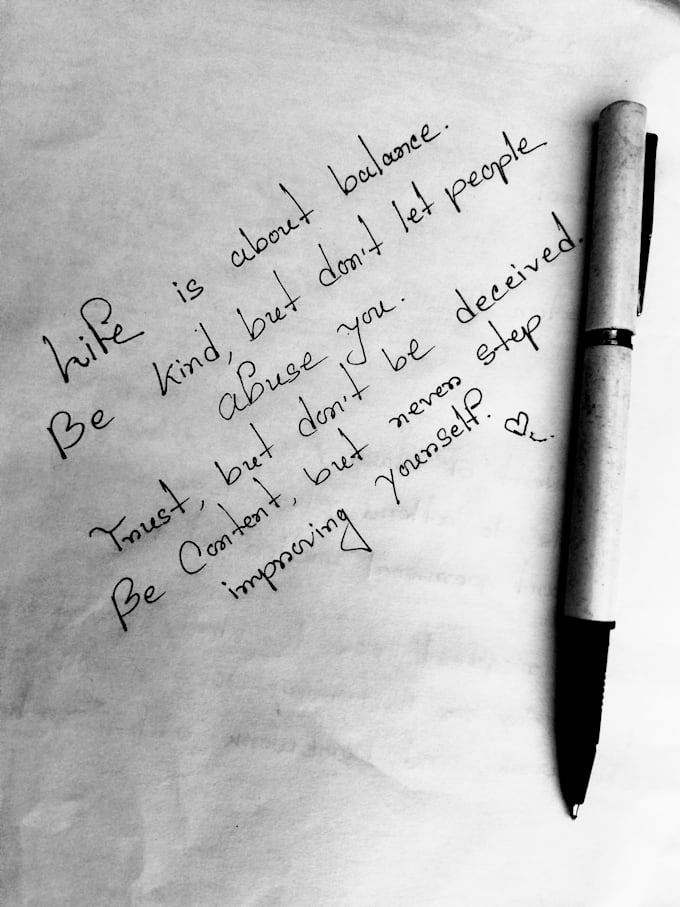 Life is about balance.
Be kind, but don't let people
abuse you.
Trust, but don't be deceived.
Be Content, but never step
improving yourself.